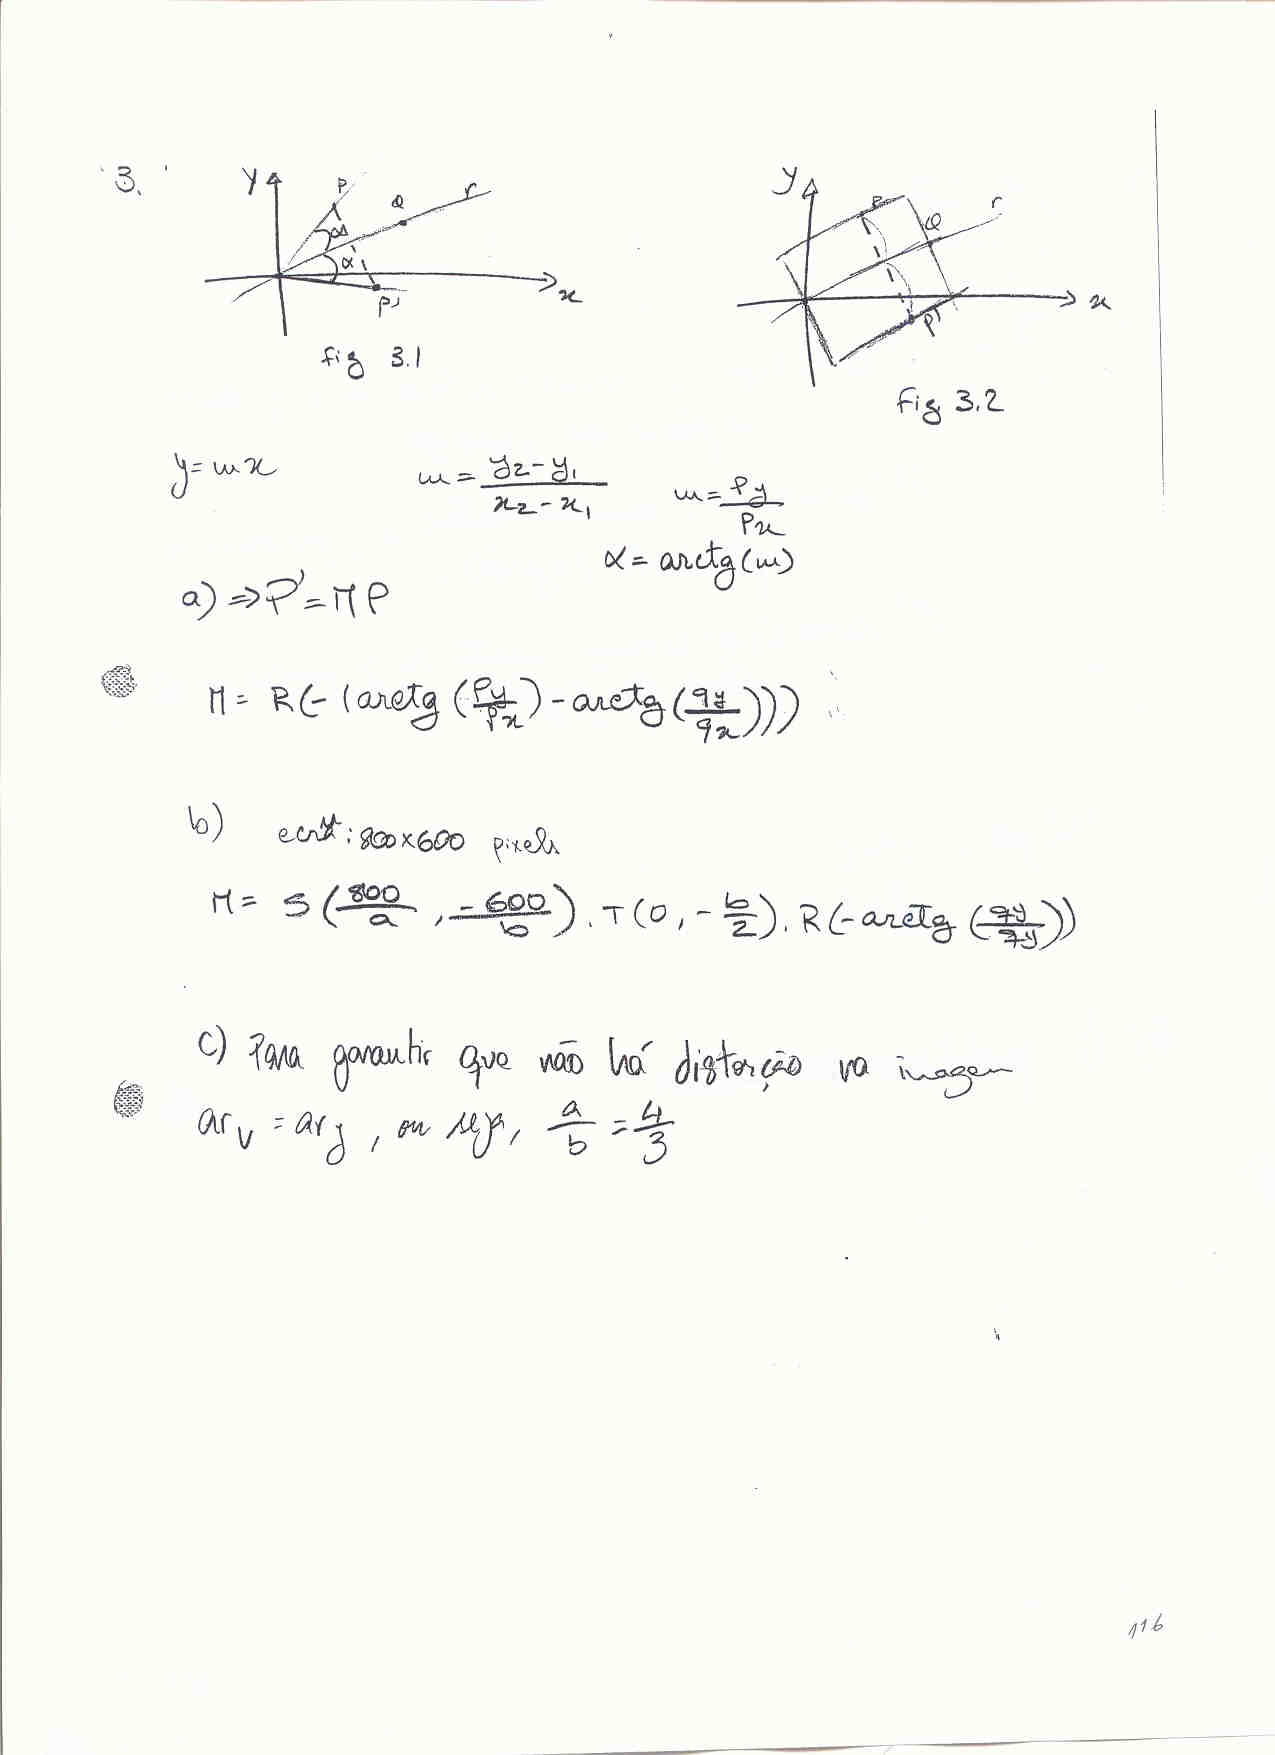 3.
y P Q r α α P' x
fig 3.1
y P Q r P' x
fig 3.2
y = mx m = y2-y1 / x2-x1 m = Py / Px
α = arctg(m)
a) ⇒ P' = M P
M = R(- (arctg (Py/Px) - arctg (qy/qx)))
b) : 800x600 pixels
M = S (800/a , -600/b) . T (0, -b/2) . R (-arctg (qy/qy))
c) Para garantir que não há distorção na imagem
arv = arj , ou seja, a/b = 4/3
116